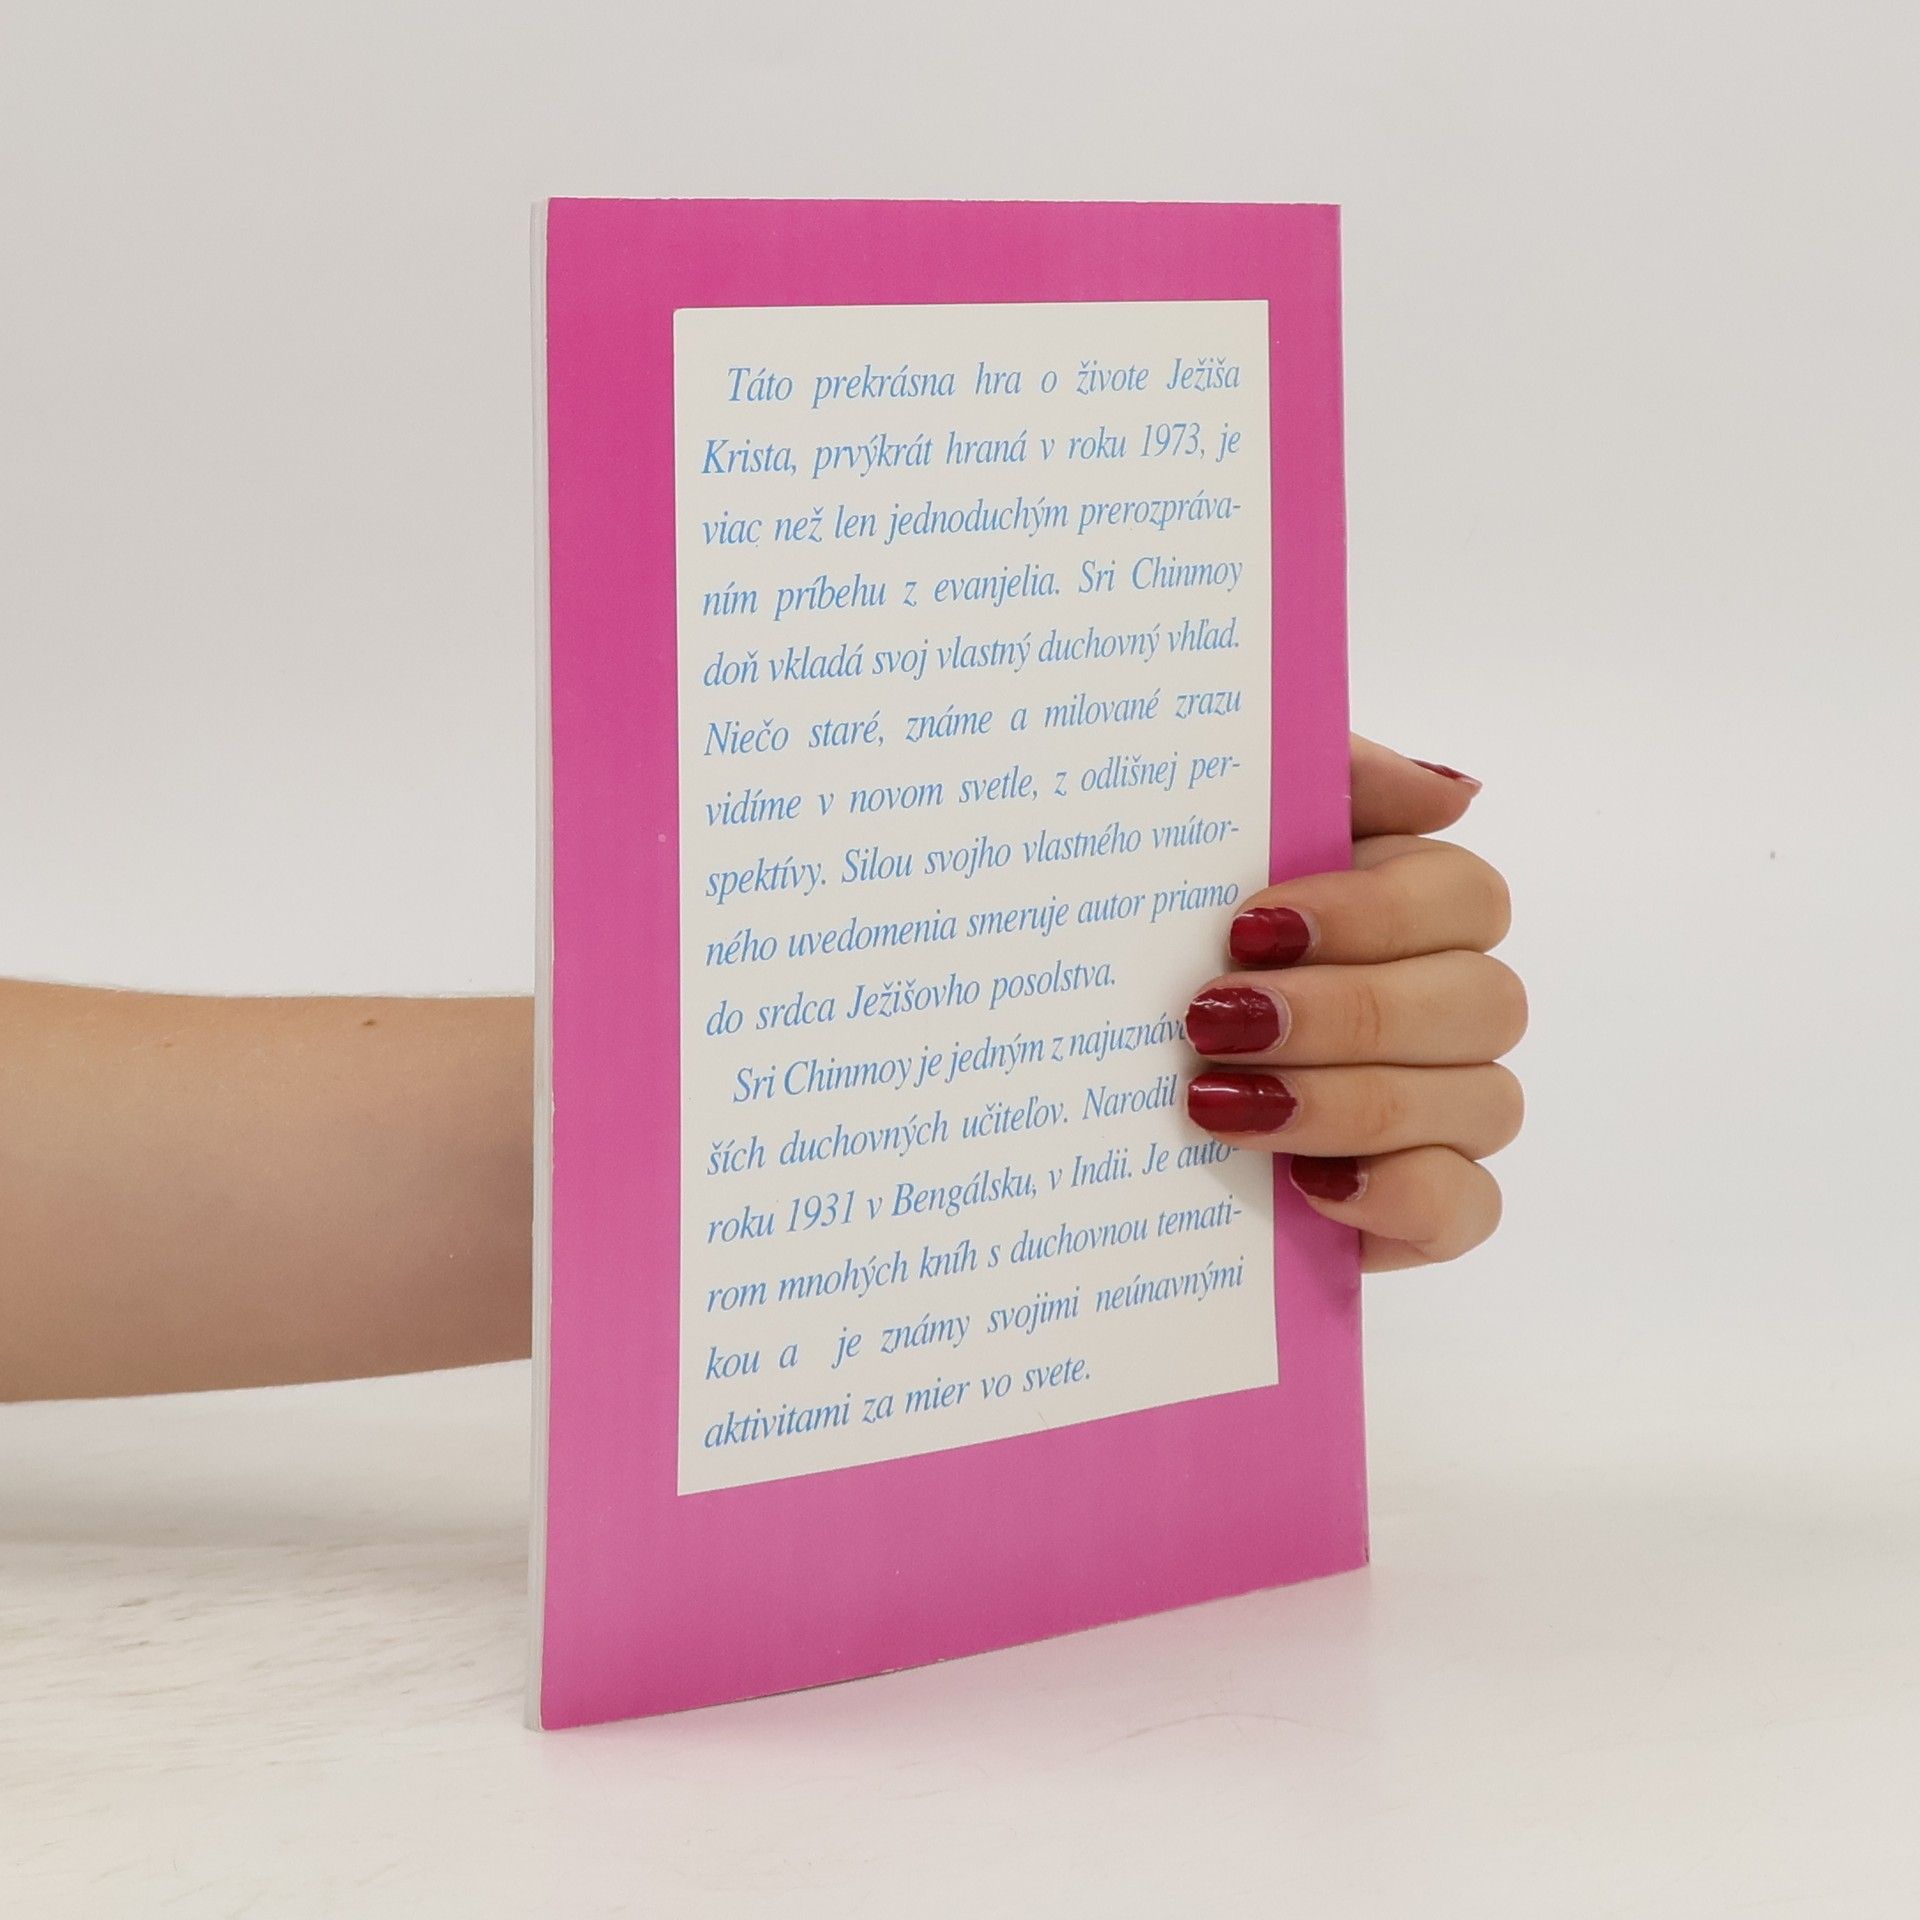 Táto prekrásna hra o živote Ježiša
Krista, prvýkrát hraná v roku 1973, je
viac než len jednoduchým prerozpráva-
ním príbehu z evanjelia. Sri Chinmoy
doň vkladá svoj vlastný duchovný vhľad.
Niečo staré, známe a milované zrazu
vidíme v novom svetle, z odlišnej per-
spektívy. Silou svojho vlastného vnútor-
ného uvedomenia smeruje autor priamo
do srdca Ježišovho posolstva.
Sri Chinmoy je jedným z
ších duchovných učiteľov. Narodil
roku 1931 v Bengálsku, v Indii. Je auto-
rom mnohých kníh s duchovnou temati-
kou a je známy svojimi neúnavnými
aktivitami za mier vo svete.